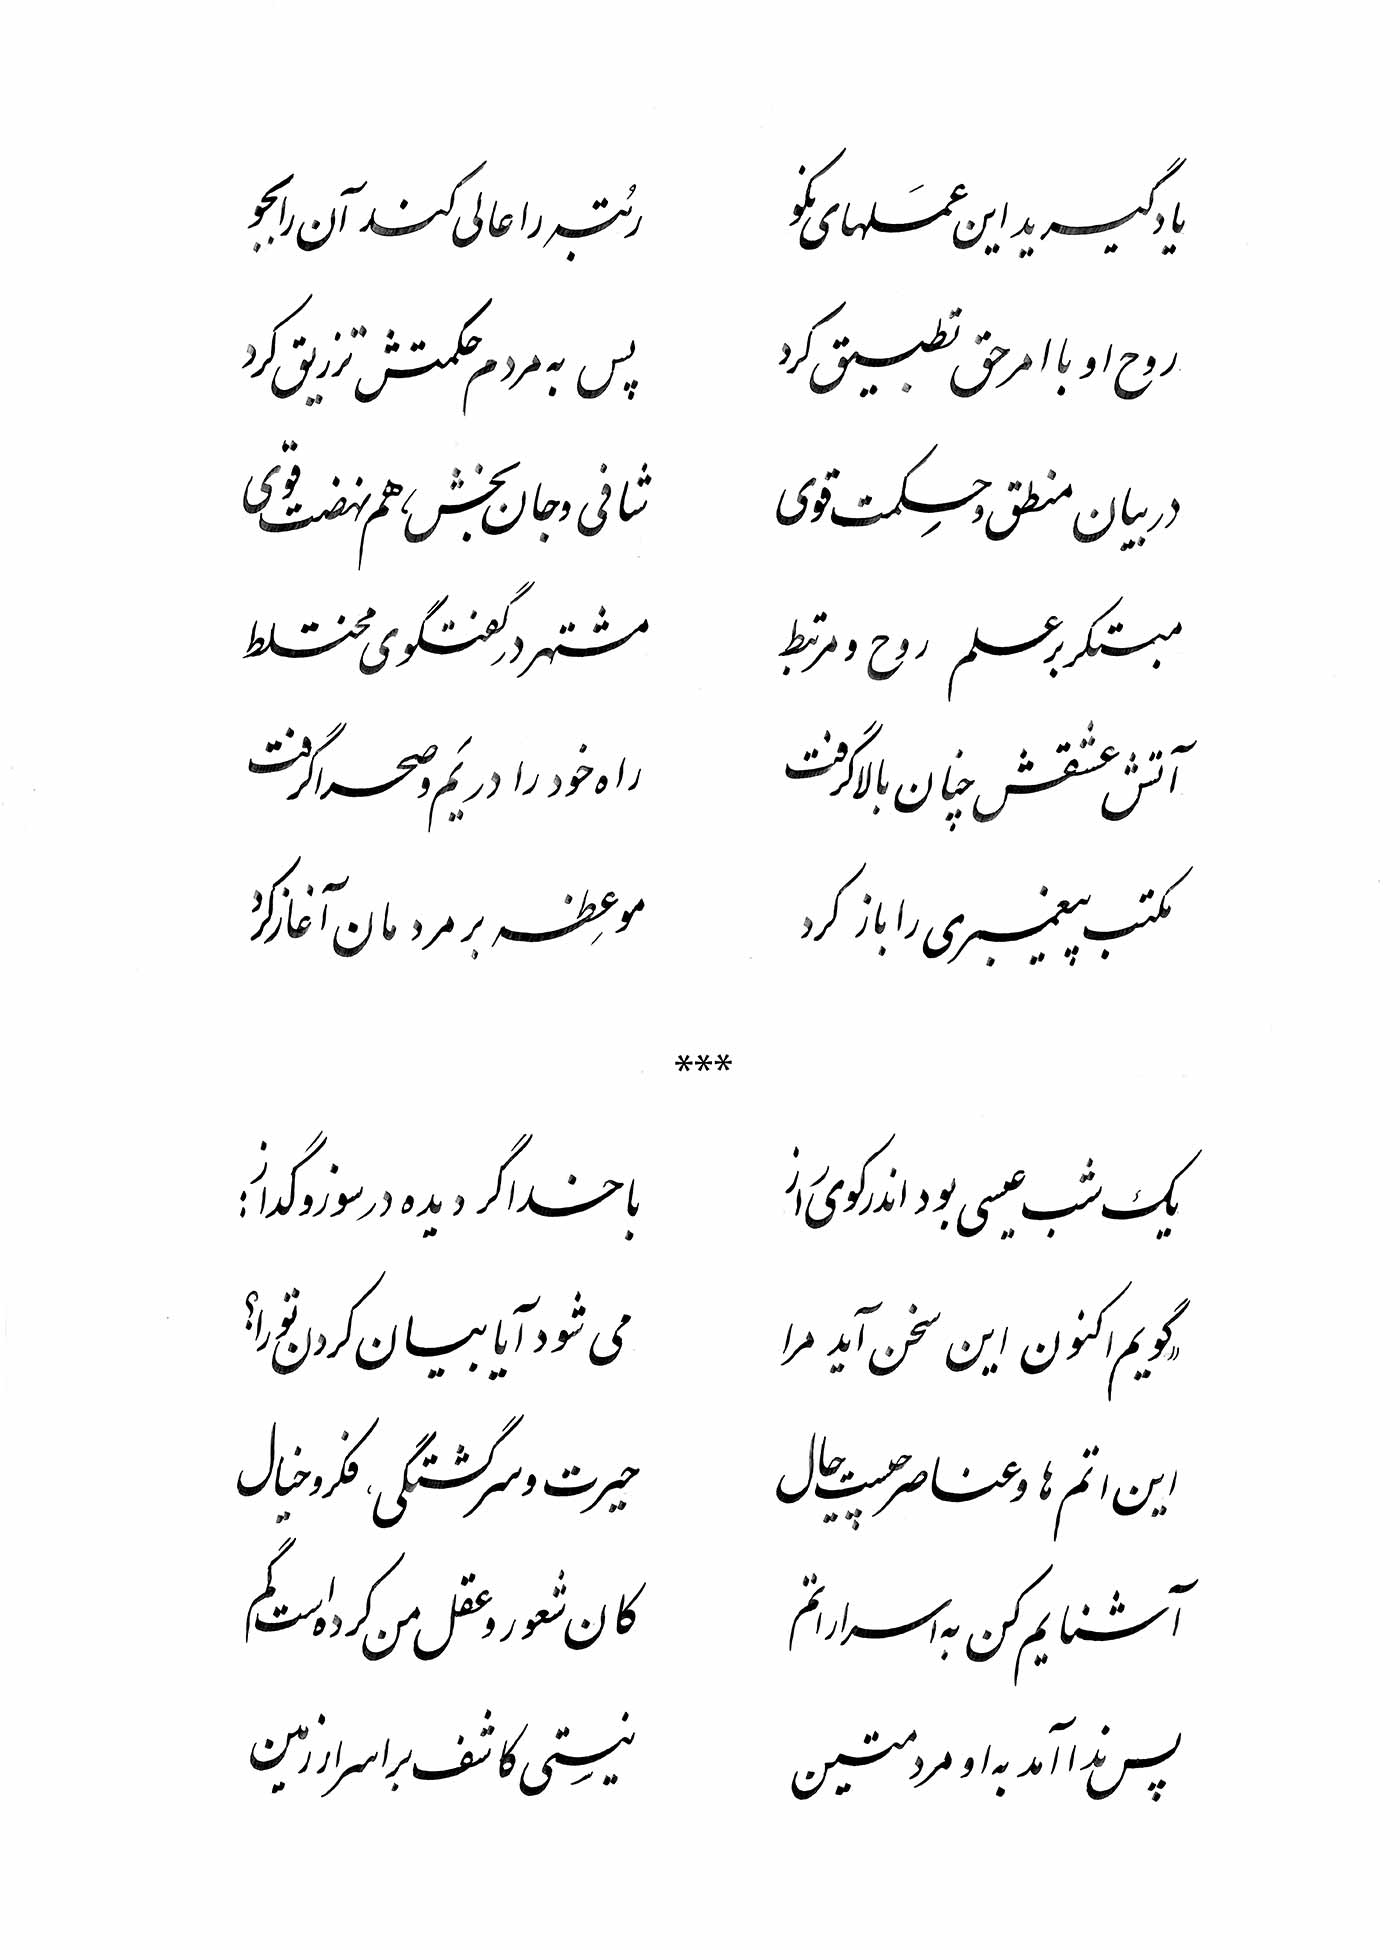 یاد گیرید این عَملهای نکو    رُتبه را عالی کند آن را بجو
روح او با امر حق تطبیق کرد    پس به مردم حکمتش تزریق کرد
در بیان منطق و حِکمت قوی    شافی و جان بخش، هم نهضت قوی
مبتکر بر علم روح و مرتبط    مشتهر در گفتگوی مختلط
آتش عشقش چنان بالا گرفت    راه خود را در یَم و صحرا گرفت
مکتب پیغمبری را باز کرد    موعِظه بر مردمان آغاز کرد
***
یک شب عیسی بود اندر کوی راز    با خدا گردیده در سوز و گداز؛
«گویم اکنون این سخن آید مرا    می شود آیا بیان کردن تو را؟
این اتم ها و عناصر چیست حال    حیرت و سرگشتگی، فکر و خیال
آشنایم کن به اسرار اتم    کان شعور و عقل من کرده است گم
پس ندا آمد به او مرد متین    نیستِی کاشف بر اسرار زمین